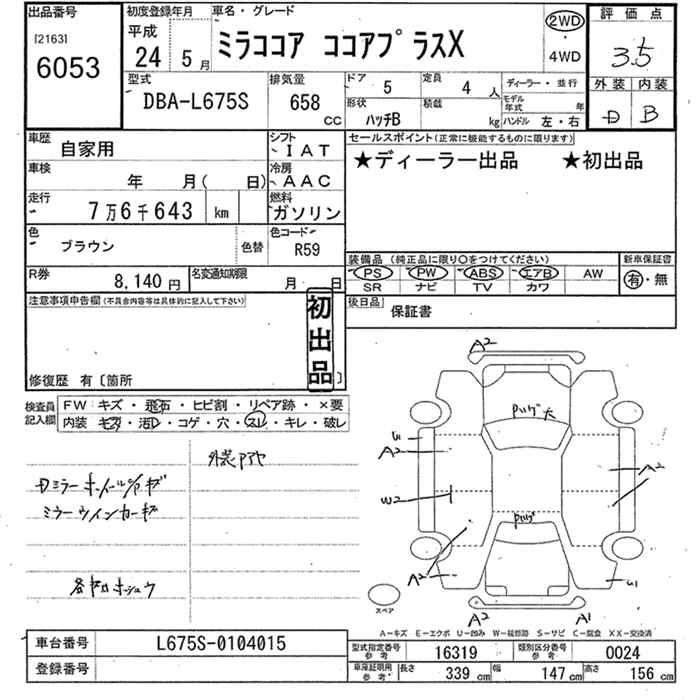 出品番号
[2163]
6053
初度登録年月
平成
24 5 月
車名・グレード
ミラココア ココアプラスX
2WD
・
4WD
評価点
3.5
外装 内装
D B
型式
DBA-L675S
排気量
658
CC
ドア
5
定員
4 人
形状
ハッチB
積載
kg
ディーラー・並行
モデル年式
年
ハンドル 左・右
車歴
自家用
シフト
IAT
車検
年 月( 日)
冷房
AAC
走行
7万6千643 km
燃料
ガソリン
色
ブラウン
色替
色コード
R59
R券
8,140 円
名変通知期限
月 日
セールスポイント(正常に機能するものに限ります)
★ディーラー出品 ★初出品
装備品(純正品に限り○をつけてください)
PS PW ABS エアB AW
SR ナビ TV カワ
新車保証書
有・無
後日品
保証書
注意事項申告欄(不具合内容等は具体的に記入して下さい)
初出品
修復歴 有〔箇所 〕
検査員記入欄
FW キズ・飛石・ヒビ割・リペア跡・×要
内装 キズ・汚レ・コゲ・穴・スレ・キレ・破レ
A2
U1
A2
W2
A2
A2
A2
A1
U1
スペア
A-キズ E-エクボ U-凹み W-補修跡 S-サビ C-腐食 XX-交換済
車台番号
L675S-0104015
登録番号
型式指定番号
参考
16319
類別区分番号
参考
0024
車庫証明用
参考
長さ
339 cm
幅
147 cm
高さ
156 cm